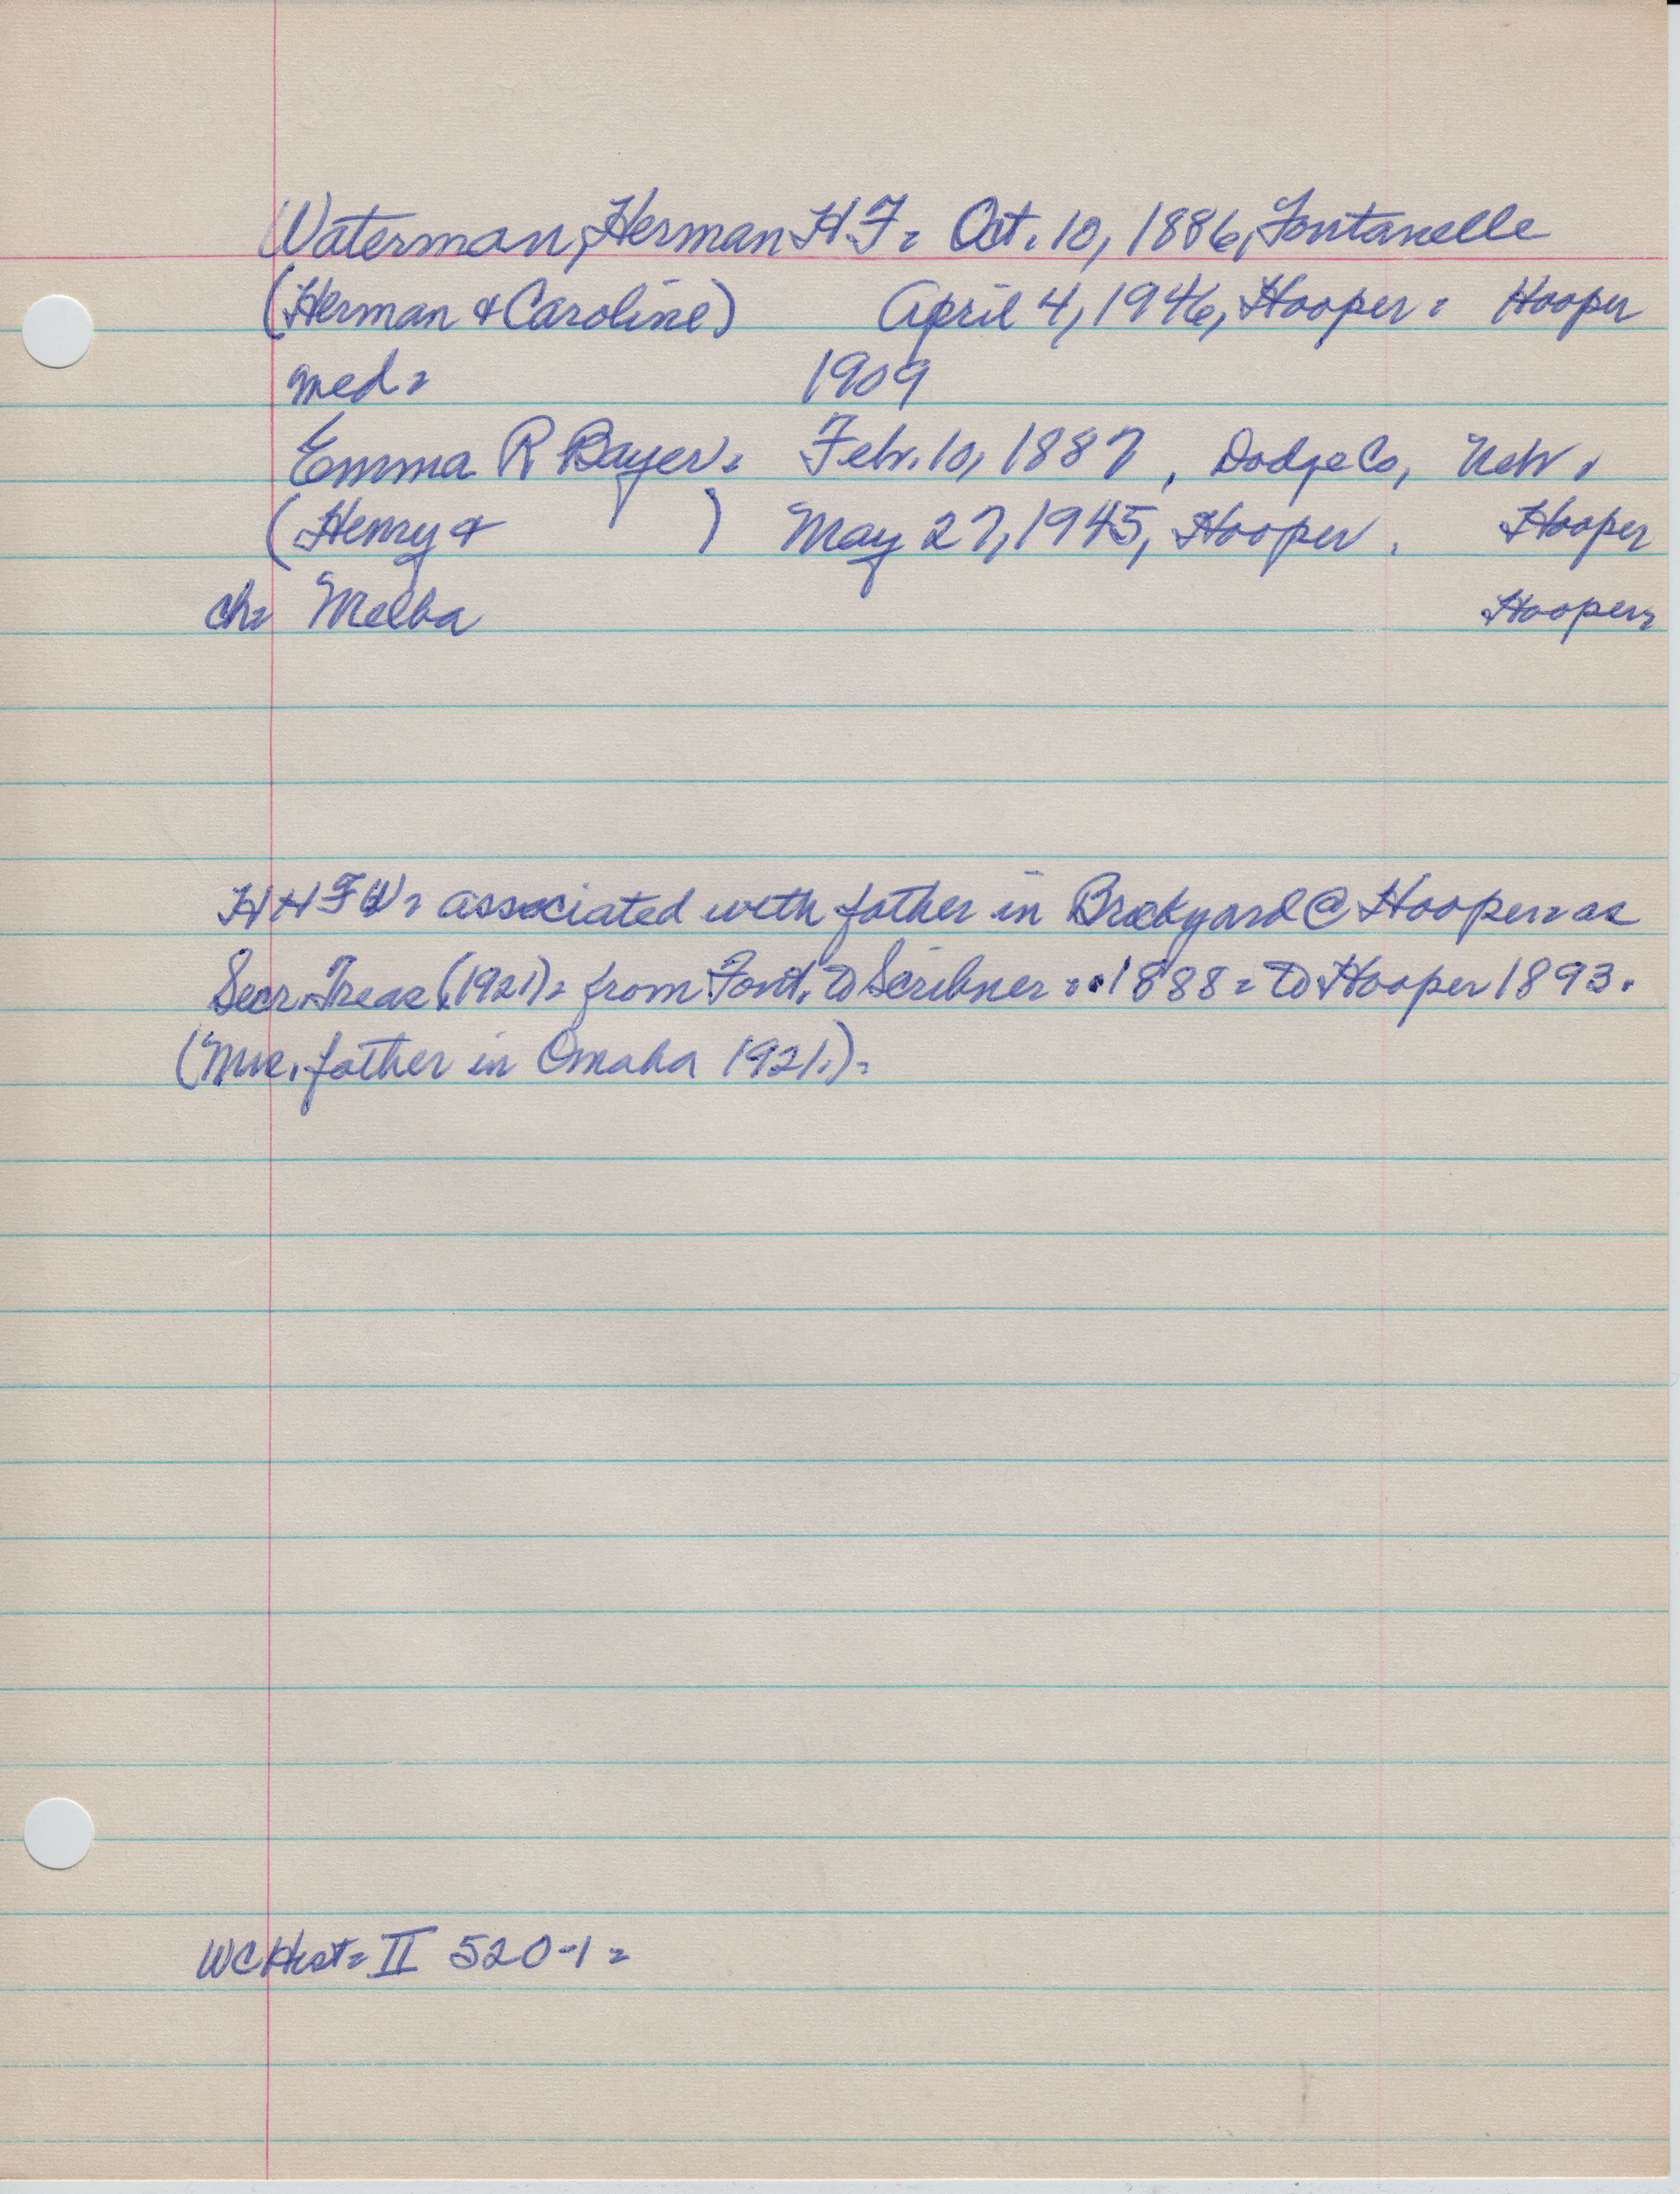 Waterman, Herman H. F. = Oct. 10, 1886, Fontanelle
(Herman & Caroline) April 4, 1946, Hooper = Hooper
med = 1909
Emma R Bayer = Feb. 10, 1887, Dodge Co, Neb.
(Henry & ) May 27, 1945, Hooper. Hooper
ch = Melba Hooper =
HHFW = associated with father in Brickyard @ Hooper = as
Secr. Treas (1921) = from Font. to Scribner = 1888 = to Hooper 1893.
(Mrs. father in Omaha 1921.) =
WCHist = II 520-1 =